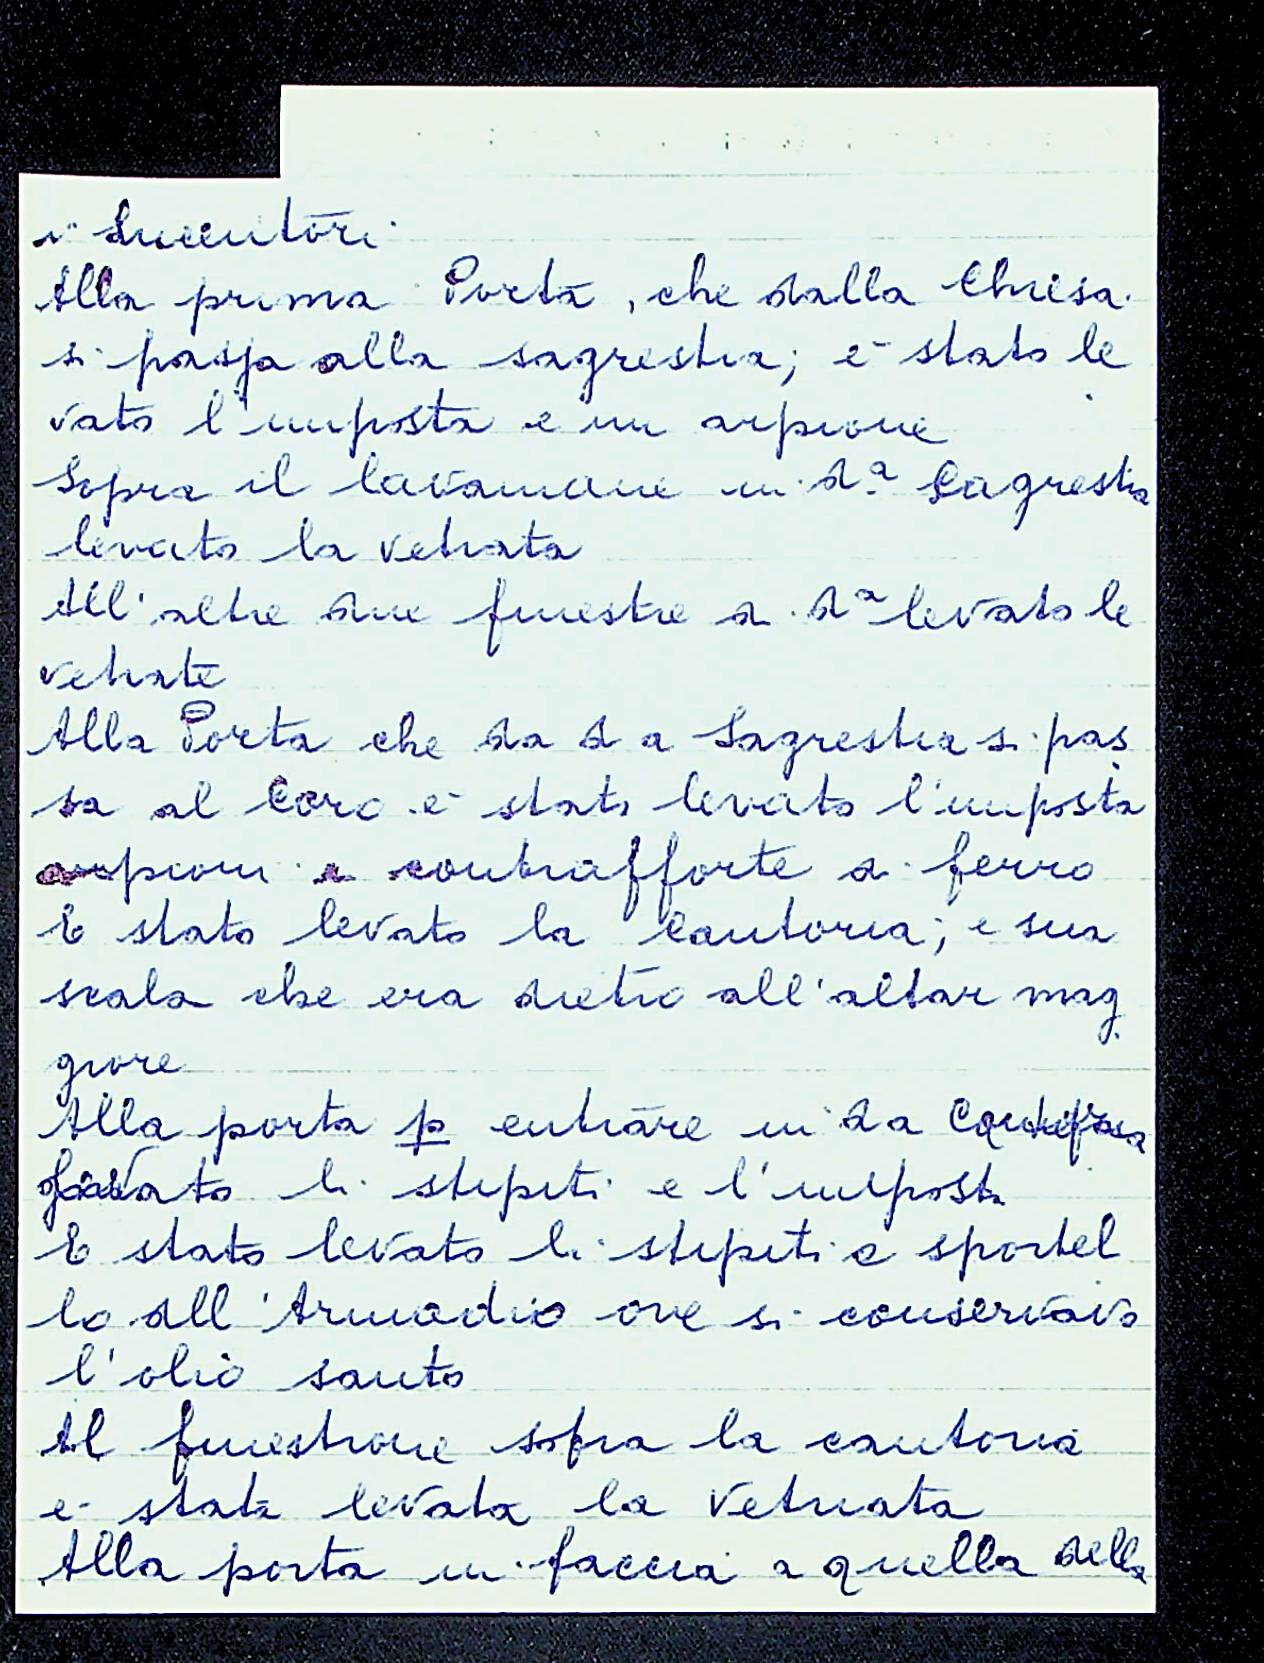 Alla prima Porta, che dalla Chiesa
si passa alla sagrestia; e stato le
vato l'imposta e un arpione
Sopra il lavamane in d.ª Sagrestia
levato la vetrata
All'altre due finestre di dª levato le
vetrate
Alla Porta che da d a Sagrestia si pas
sa al Coro e stato levato l'imposta
arpioni e contrafforte di ferro
E stato levato la Cantoria; e sua
scala che era dietro all'altar mag
giore
Alla porta p entrare in da
li stipiti e l'imposta
E stato levato li stipiti e sportel
lo all'Armadio ove si conservava
l'olio santo
Al finestrone sopra la cantoria
e stata levata la Vetriata
Alla porta in faccia a quella della